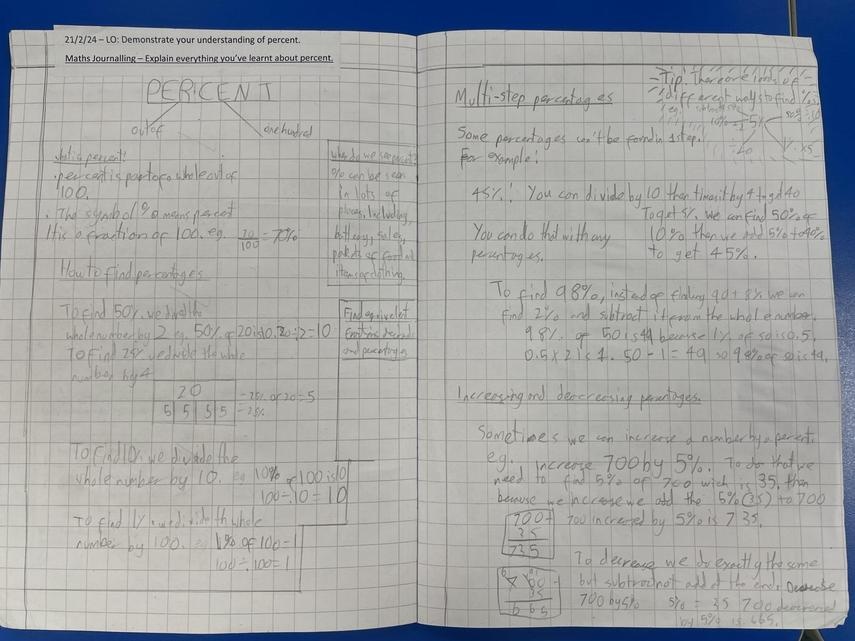 21/2/24 – LO: Demonstrate your understanding of percent.
Maths Journalling – Explain everything you've learnt about percent.
PERCENT
out of
one hundred
what is percent?
· percent is part of a whole out of
100.
· The symbol % means percent
It is a fraction of 100. eg. 70/100 = 70%
where do we see percent?
% can be seen
in lots of
places, including,
battery, sales,
packets of food and
items of clothing.
How to find percentages
To find 50% we divide the
whole number by 2 eg. 50% of 20 is 10. 20÷2=10
To find 25% we divide the whole
number by 4
20
5 5 5 5
=25% or 20 = 5
=25%
Find equivelent
fractions decimals
and percentages
To find 10% we divide the
whole number by 10. eg 10% of 100 is 10
100÷10=10
To find 1% we divide the whole
number by 100. eg 1% of 100=1
100÷100=1
Multi-step percentages
Tip There are loads of
different ways to find %s.
eg.
10% ÷2 5%
50% ÷10
÷20
1% ×5
Some percentages can't be found in 1 step.
For example!
45%! You can divide by 10 then times it by 4 to get 40
To get 5% we can find 50% of
10% then we add 5% to 40%
to get 45%.
You can do that with any
percentages.
To find 98%, instead of finding 90 + 8% we can
find 2% and subtract it from the whole number.
98% of 50 is 49 because 1% of 50 is 0.5,
0.5 x 2 is 1. 50 - 1 = 49 so 98% of 50 is 49.
Increasing and decreasing percentages.
Sometimes we can increase a number by a percent.
eg. Increase 700 by 5%. To do that we
need to find 5% of 700 wich is 35. then
because we increase we add the 5% (35) to 700
700 increased by 5% is 735.
700+
35
735
To decrease we do exactly the same
but subtract not add at the end. Decrease
700 by 5% 5% = 35 700 decreased
by 5% is 665.
35
665